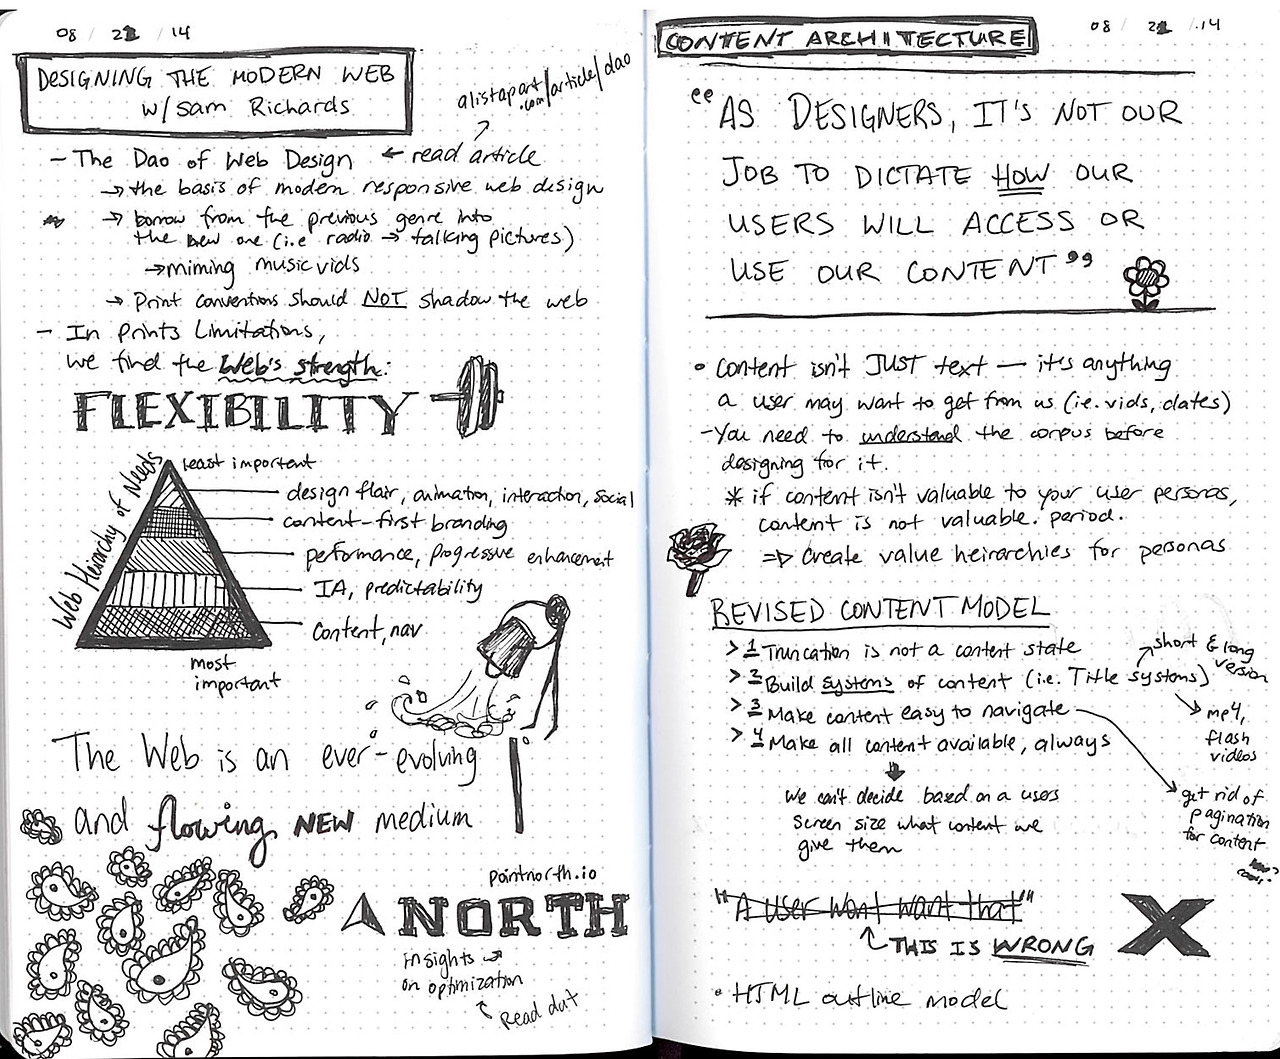 08 / 21 / 14
DESIGNING THE MODERN WEB
w/ Sam Richards
alistapart
.com/article/dao
– The Dao of Web Design ← read article
→ the basis of modern responsive web design
→ borrow from the previous genre into
the new one (i.e radio → talking pictures)
→ miming music vids
→ Print conventions should NOT shadow the web
– In Prints Limitations,
we find the Web's strength:
FLEXIBILITY
Web Heirarchy of Needs
least important
design flair, animation, interaction, social
content-first branding
performance, progressive enhancement
IA, predictability
Content, nav
most
important
The Web is an ever-evolving
and flowing NEW medium
pointnorth.io
NORTH
insights
on optimization
Read dat
CONTENT ARCHITECTURE
08 / 21 / 14
"AS DESIGNERS, IT'S NOT OUR
JOB TO DICTATE HOW OUR
USERS WILL ACCESS OR
USE OUR CONTENT"
• Content isn't JUST text — it's anything
a user may want to get from us (i.e. vids, dates)
– You need to understand the corpus before
designing for it.
* if content isn't valuable to your user personas,
content is not valuable. period.
⇒ Create value heirarchies for personas
REVISED CONTENT MODEL
> 1 Truncation is not a content state
short & long
version
> 2 Build systems of content (i.e. Title systems)
> 3 Make content easy to navigate
mp4,
flash
videos
> 4 Make all content available, always
We can't decide based on a users
screen size what content we
give them
get rid of
pagination
for content
"A user wont want that"
THIS IS WRONG
• HTML outline model